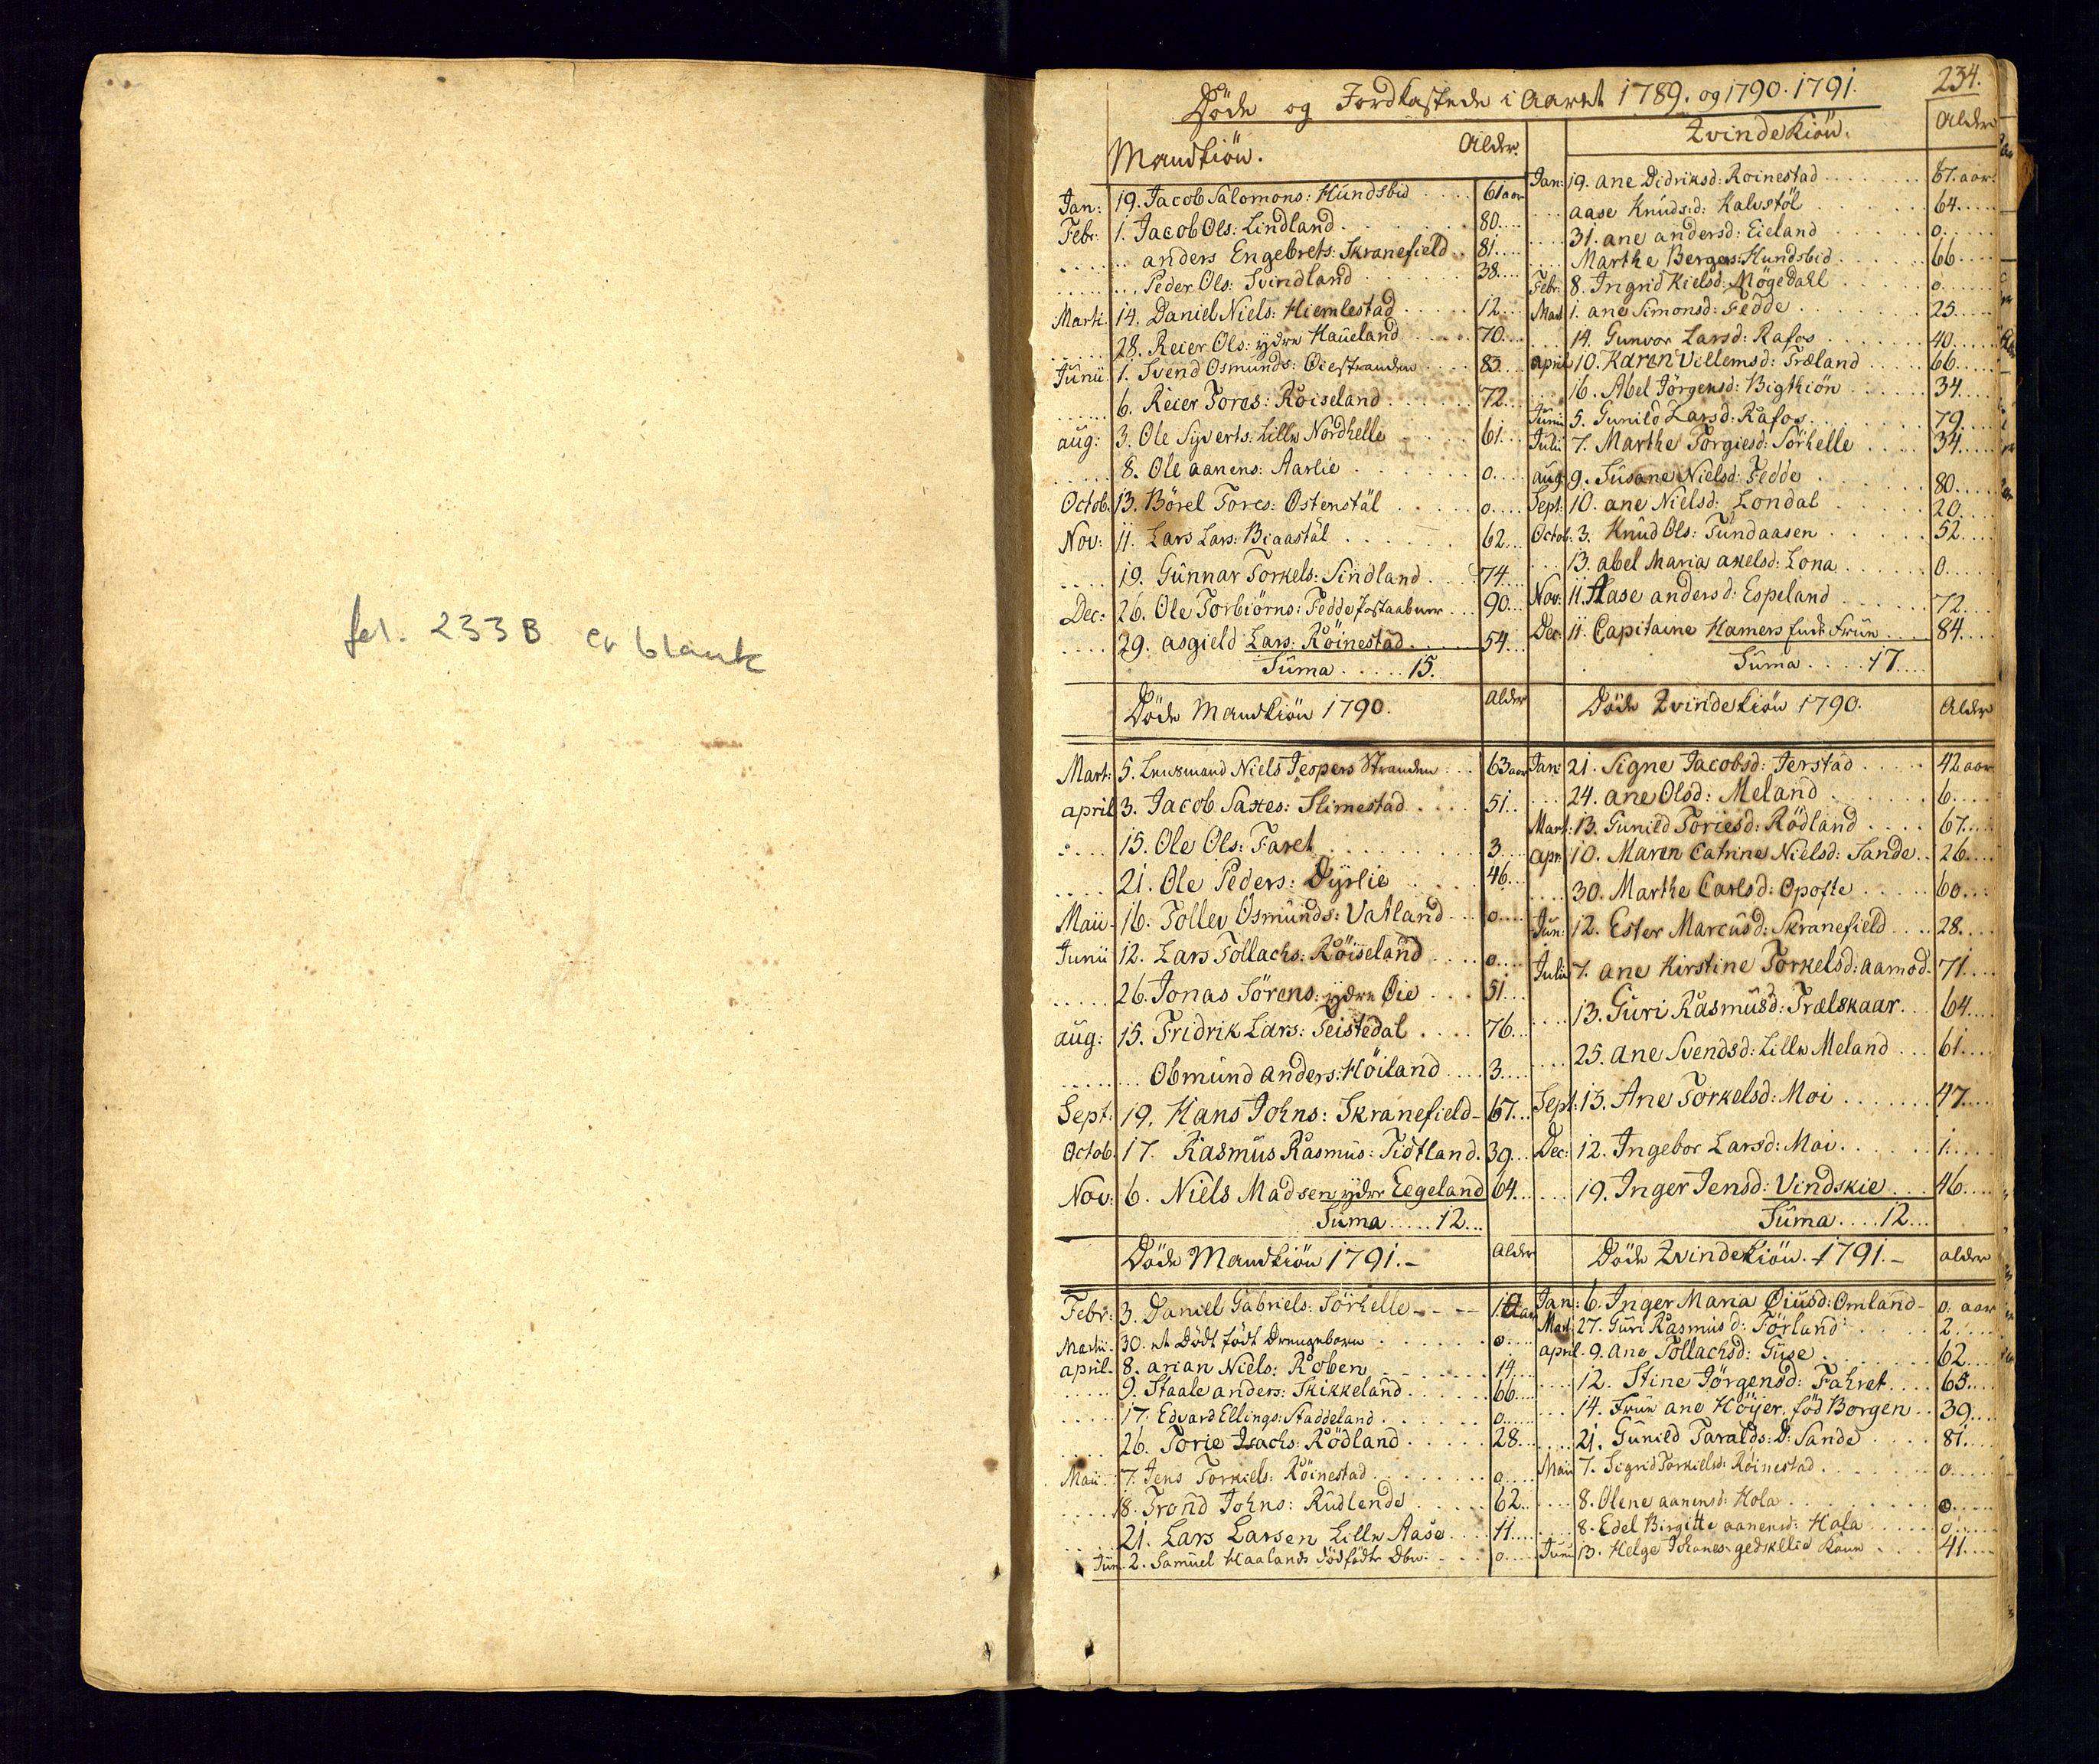 fol. 233 B er blank
234.
Döde og Jordkastede i Aaret 1789. og 1790. 1791.
Mandkiön. Alder.
Jan: 19. Jacob Salomons: Hundsbid .... 61 aar
Febr: 1. Jacob Ols: Lindland ....... 80....
...... anders Engebrets: Skranefield.. 81....
...... Peder Ols: Svindland ..... 38....
Marti. 14. Daniel Niels: Hiemlestad ..... 12...
..... 28. Reier Ols: ydre Haueland .... 70...
Junii. 1. Svend Osmunds: Öiestranden .... 83....
..... 6. Reier Tores: Röiseland ...... 72...
aug: 3. Ole Syverts: Lille Nordhelle ..... 61...
..... 8. Ole aanens: Aarlie ...... 0....
Octob. 13. Börel Tores: Östenstäl ..... 0....
Nov: 11. Lars Lars: Biaastäl ...... 62...
.... 19. Gunnar Torkels: Sindland .... 74....
Dec: 26. Ole Torbiörns: Fedde ... 90...
.... 29. asgield Lars: Röinestad .... 54...
Suma ..... 15.
Zvindekiön. Alder
Jan: 19. ane Didriksd: Roinestad ...... 67. aar.
... aase Knudsd: Kalvstöl ...... 64.....
.... 31. ane andersd: Eieland ..... 0.....
.... Marthe Bergers: Hundsbid ..... 66....
Febr: 8. Ingrid Kielsd: Mögedahl ..... 0.....
Mart 1. ane Simonsd: Fedde ....... 25....
... 14. Gunvor Larsd: Rafos ...... 40.....
april 10. Karen Villemsd: Træland ..... 66....
.... 16. Abel Jörgensd: Bigtkiön ..... 34....
Junii 5. Gunild Larsd: Rafos ....... 79....
Julii 7. Marthe Torgiesd: Sörhelle .... 34....
aug: 9. Susane Nielsd: Fedde ..... 80....
Sept: 10. ane Nielsd: Londal ...... 20....
Octob: 3. Knud Ols: Tundaasen ..... 52....
... 13. abel Maria axelsd: Lona ...... 0.....
Nov: 11. Aase andersd: Espeland ...... 72....
Dec: 11. Capitaine Hamers Frün ... 84....
Suma ..... 17....
Döde Mandkiön 1790. Alder
Mart: 5. Lensmand Niels Jespers Stranden ... 63 aar
april 3. Jacob Saxes: Slimestad .... 51...
.... 15. Ole Ols: Faret ........ 3....
.... 21. Ole Peders: Dyrlie .... 46...
Maii 16. Tollev Osmunds: Vatland ... 0....
Junii 12. Lars Tollachs: Röiseland .... 0....
..... 26. Jonas Sörens: ydre Öie .... 51...
aug: 15. Fridrik Lars: Teistedal .... 76...
...... Obmund anders: Höiland .... 3....
Sept: 19. Hans Johns: Skranefield - 67...
Octob. 17. Rasmus Rasmus: Tidtland. 39...
Nov: 6. Niels Madsen ydre Eegeland 64...
Suma ..... 12...
Döde Zvindekiön 1790. Alder
Jan: 21. Signe Jacobsd: Jerstad ..... 42 aar
... 24. ane Olsd: Meland ...... 6....
Mart: 13. Gunild Toriesd: Rödland .... 67....
apr: 10. Maren Catrine Nielsd: Sande .. 26....
.... 30. Marthe Carlsd: Opofte ..... 60...
Jun: 12. Ester Marcusd: Skranefield .... 28....
Julii 7. ane Kirstine Torkelsd: aamod. 71....
.... 13. Guri Rasmusd: Trælskaar ... 64....
.... 25. ane Svendsd: Lille Meland ... 61....
Sept: 13. Ane Torkelsd: Moi ....... 47....
Dec: 12. Ingebor Larsd: Moi ...... 1.....
.... 19. Inger Jensd: Vindskie .... 46....
Suma .... 12...
Döde Mandkiön 1791. - Alder
Febr: 3. Daniel Gabriels: Sörhelle - - -
Martii. 30. et Dödt födt Drengebarn ...... 0....
april. 8. arian Niels: Roben ....... 14....
..... 9. Staale anders: Skikkeland ...... 66....
..... 17. Edvard Ellings: Staddeland ...... 0....
.... 26. Torie Isachs: Rödland ..... 28....
Maii 7. Jens Torkiels: Röinestad ...... 0....
.... 18. Trond Johns: Rudlende ..... 62....
.... 21. Lars Larsen Lille Aase .... 11....
Jun. 2. Samuel Haalands dödfödte Dbn: ... 0....
Döde Zvindekiön. 1791. - alder
Jan: 6. Inger Maria Öiusd: Omland - 0. aar
Mart: 27. Guri Rasmusd: Törland ..... 2....
april. 9. ane Tollachsd: Guse ...... 62....
.... 12. Stine Jörgensd: Fahret .... 65....
.... 14. Frue ane Höyer, föd Borgen .. 39....
.... 21. Gunild Taralds: D: Sande .... 81....
Maii 7. Sigrid Torkielsd: Röinestad ..... 0.....
.... 8. Olene aanensd: Hola ...... 0.....
.... 8. Edel Birgitte aanensd: Hola .... 0.....
Junii 13. Helge Johanes gedsklie Kone .... 41....